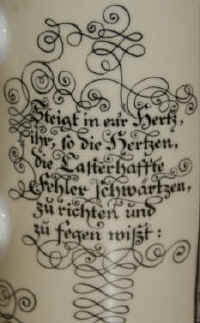 Steigt in eür Hertz,
ihr, so die Hertzen,
die Lasterhaffte
Fehler schwärtzen,
zu richten und
zu fegen wißt: